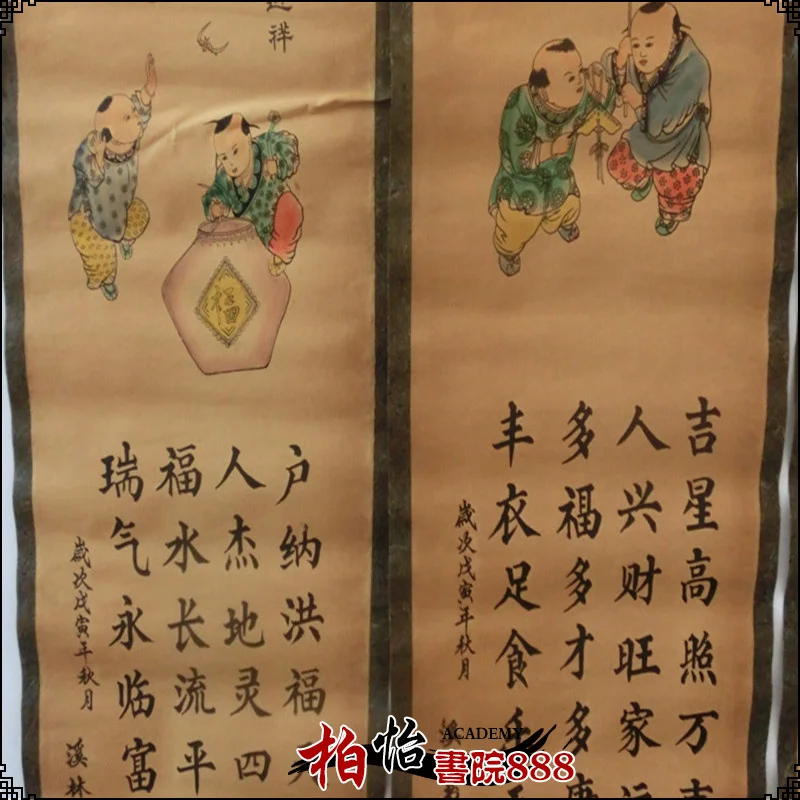 吉星高照万
人兴财旺家运
多福多才多
丰衣足食
歲次戊寅年秋月
溪
祥
福
户纳洪福
人杰地灵四
福水长流平
瑞气永临富
歲次戊寅年秋月
溪林
ACADEMY
柏怡書院888